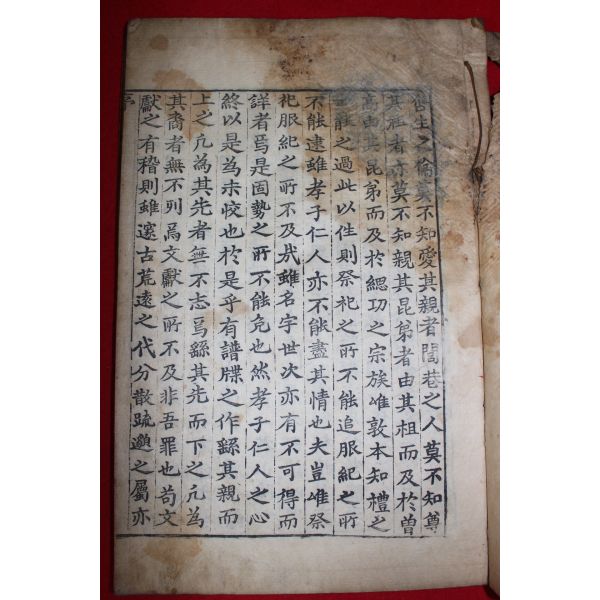 生之倫莫不知愛其親者閭巷之人莫不知尊
其祖者亦莫不知親其昆弟者由其祖而及於曾
高由其昆弟而及於緦功之宗族惟敦本知禮之
能之過此以徃則祭祀之所不能追服紀之所
不能逮雖孝子仁人亦不能盡其情也夫豈唯祭
祀服紀之所不及㢤雖名字世次亦有不可得而
詳者焉是固勢之所不能免也然孝子仁人之心
終以是為未恔也於是乎有譜牒之作繇其親而
上之凢為其先者無不志焉繇其先而下之凢為
其裔者無不列焉文獻之所不及非吾罪也苟文
獻之有稽則雖邃古荒遠之代分散疏邈之屬亦